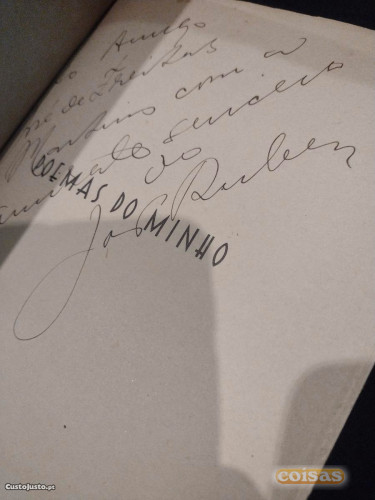 Ao Amigo
José de Freitas
Martins com a
amizade sincera
do
José Ruben
POEMAS DO MINHO
CustoJusto.pt
coisas